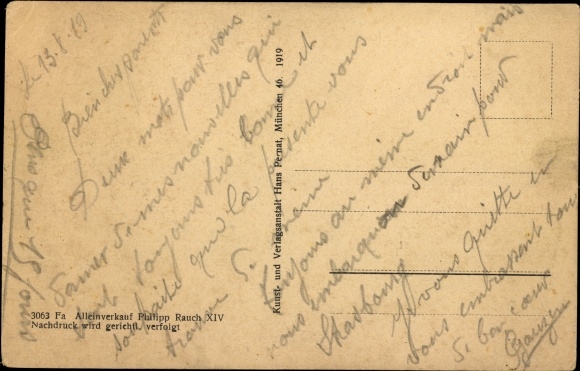 le 13. 8. 19
Bien chers parents
Deux mots pour vous
donner de mes nouvelles qui
sont toujours très bonnes et
souhaite que la présente vous
trouve de même
Toujours au même endroit mais
nous embarquons demain pour
Strasbourg
Je vous quitte en
vous embrassant tous
de bon cœur
Plus que 15 jours
3063 Fa Alleinverkauf Philipp Rauch XIV
Nachdruck wird gerichtl. verfolgt
Kunst- und Verlagsanstalt Hans Pernat, München 46. 1919